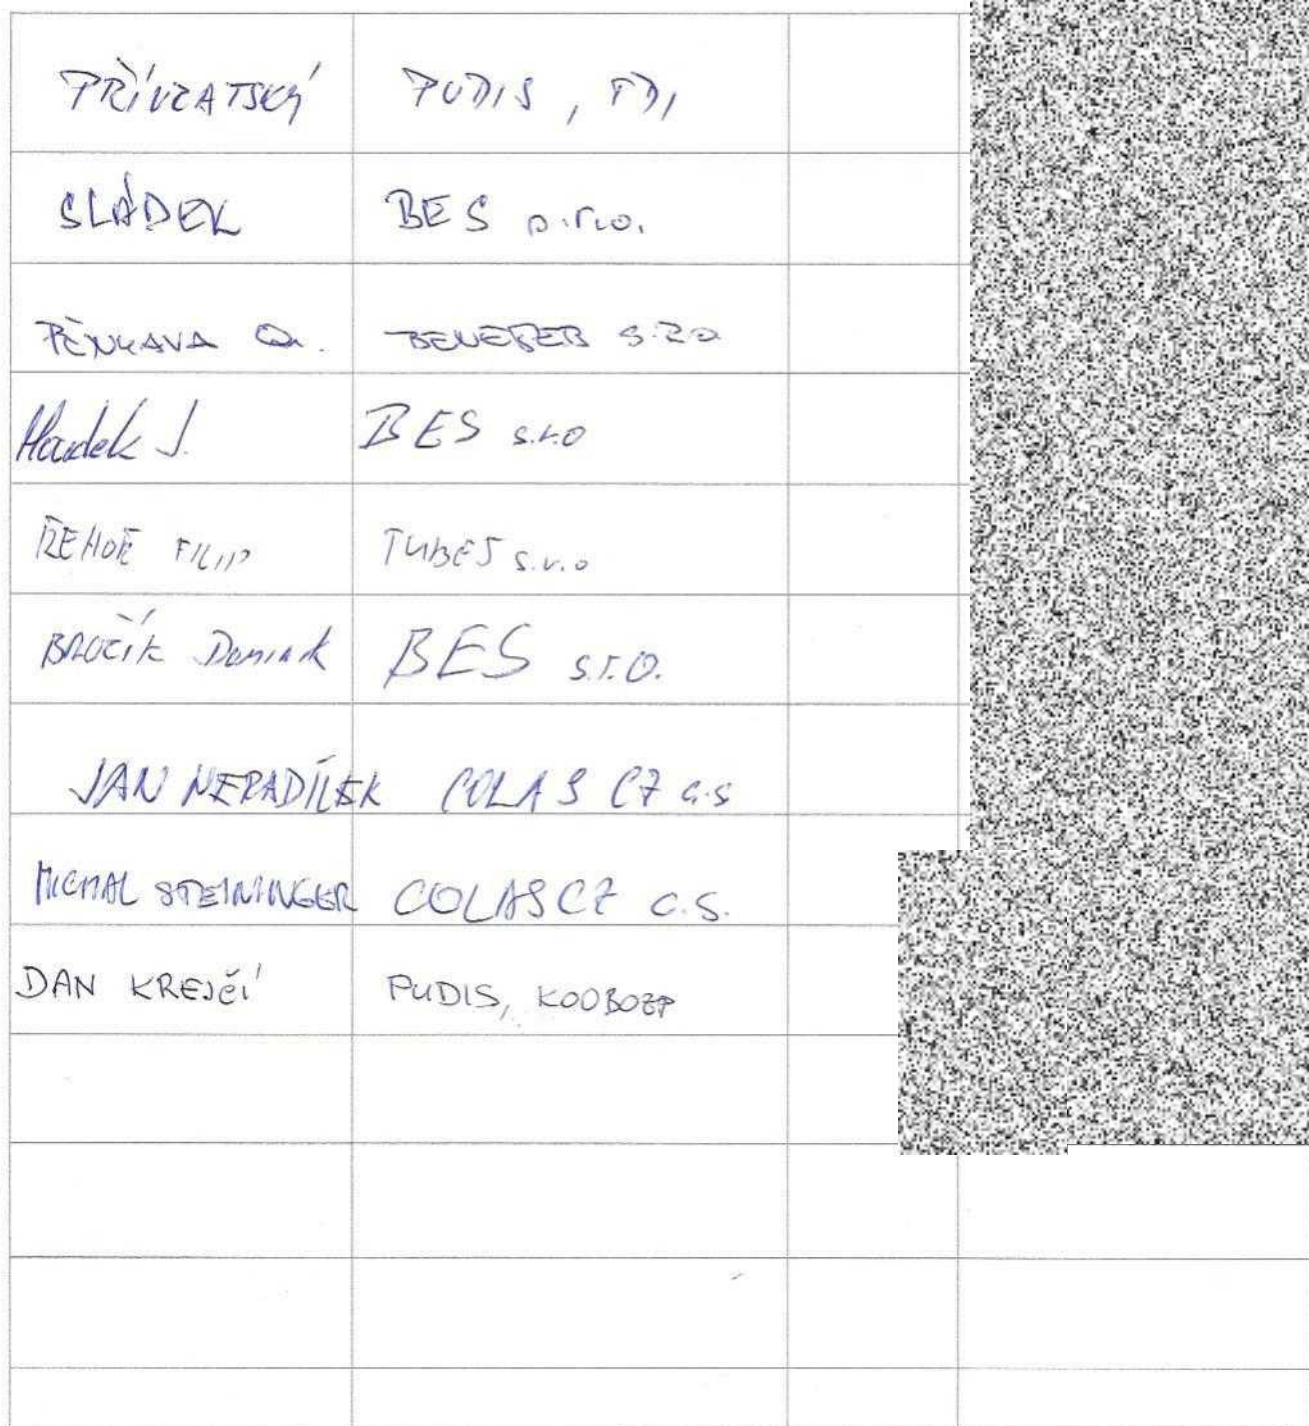 PŘÍVRATSKÝ PUDIS, TDI
SLÁDEK BES s.r.o.
PĚNKAVA O. s.r.o.
J. BES s.r.o
ŘEHOŘ FILIP TUBES s.r.o
Dominik BES s.r.o.
JAN NERADÍLEK COLAS CZ a.s
MICHAL STEININGER COLAS CZ a.s.
DAN KREJČÍ PUDIS, KOOBOZP